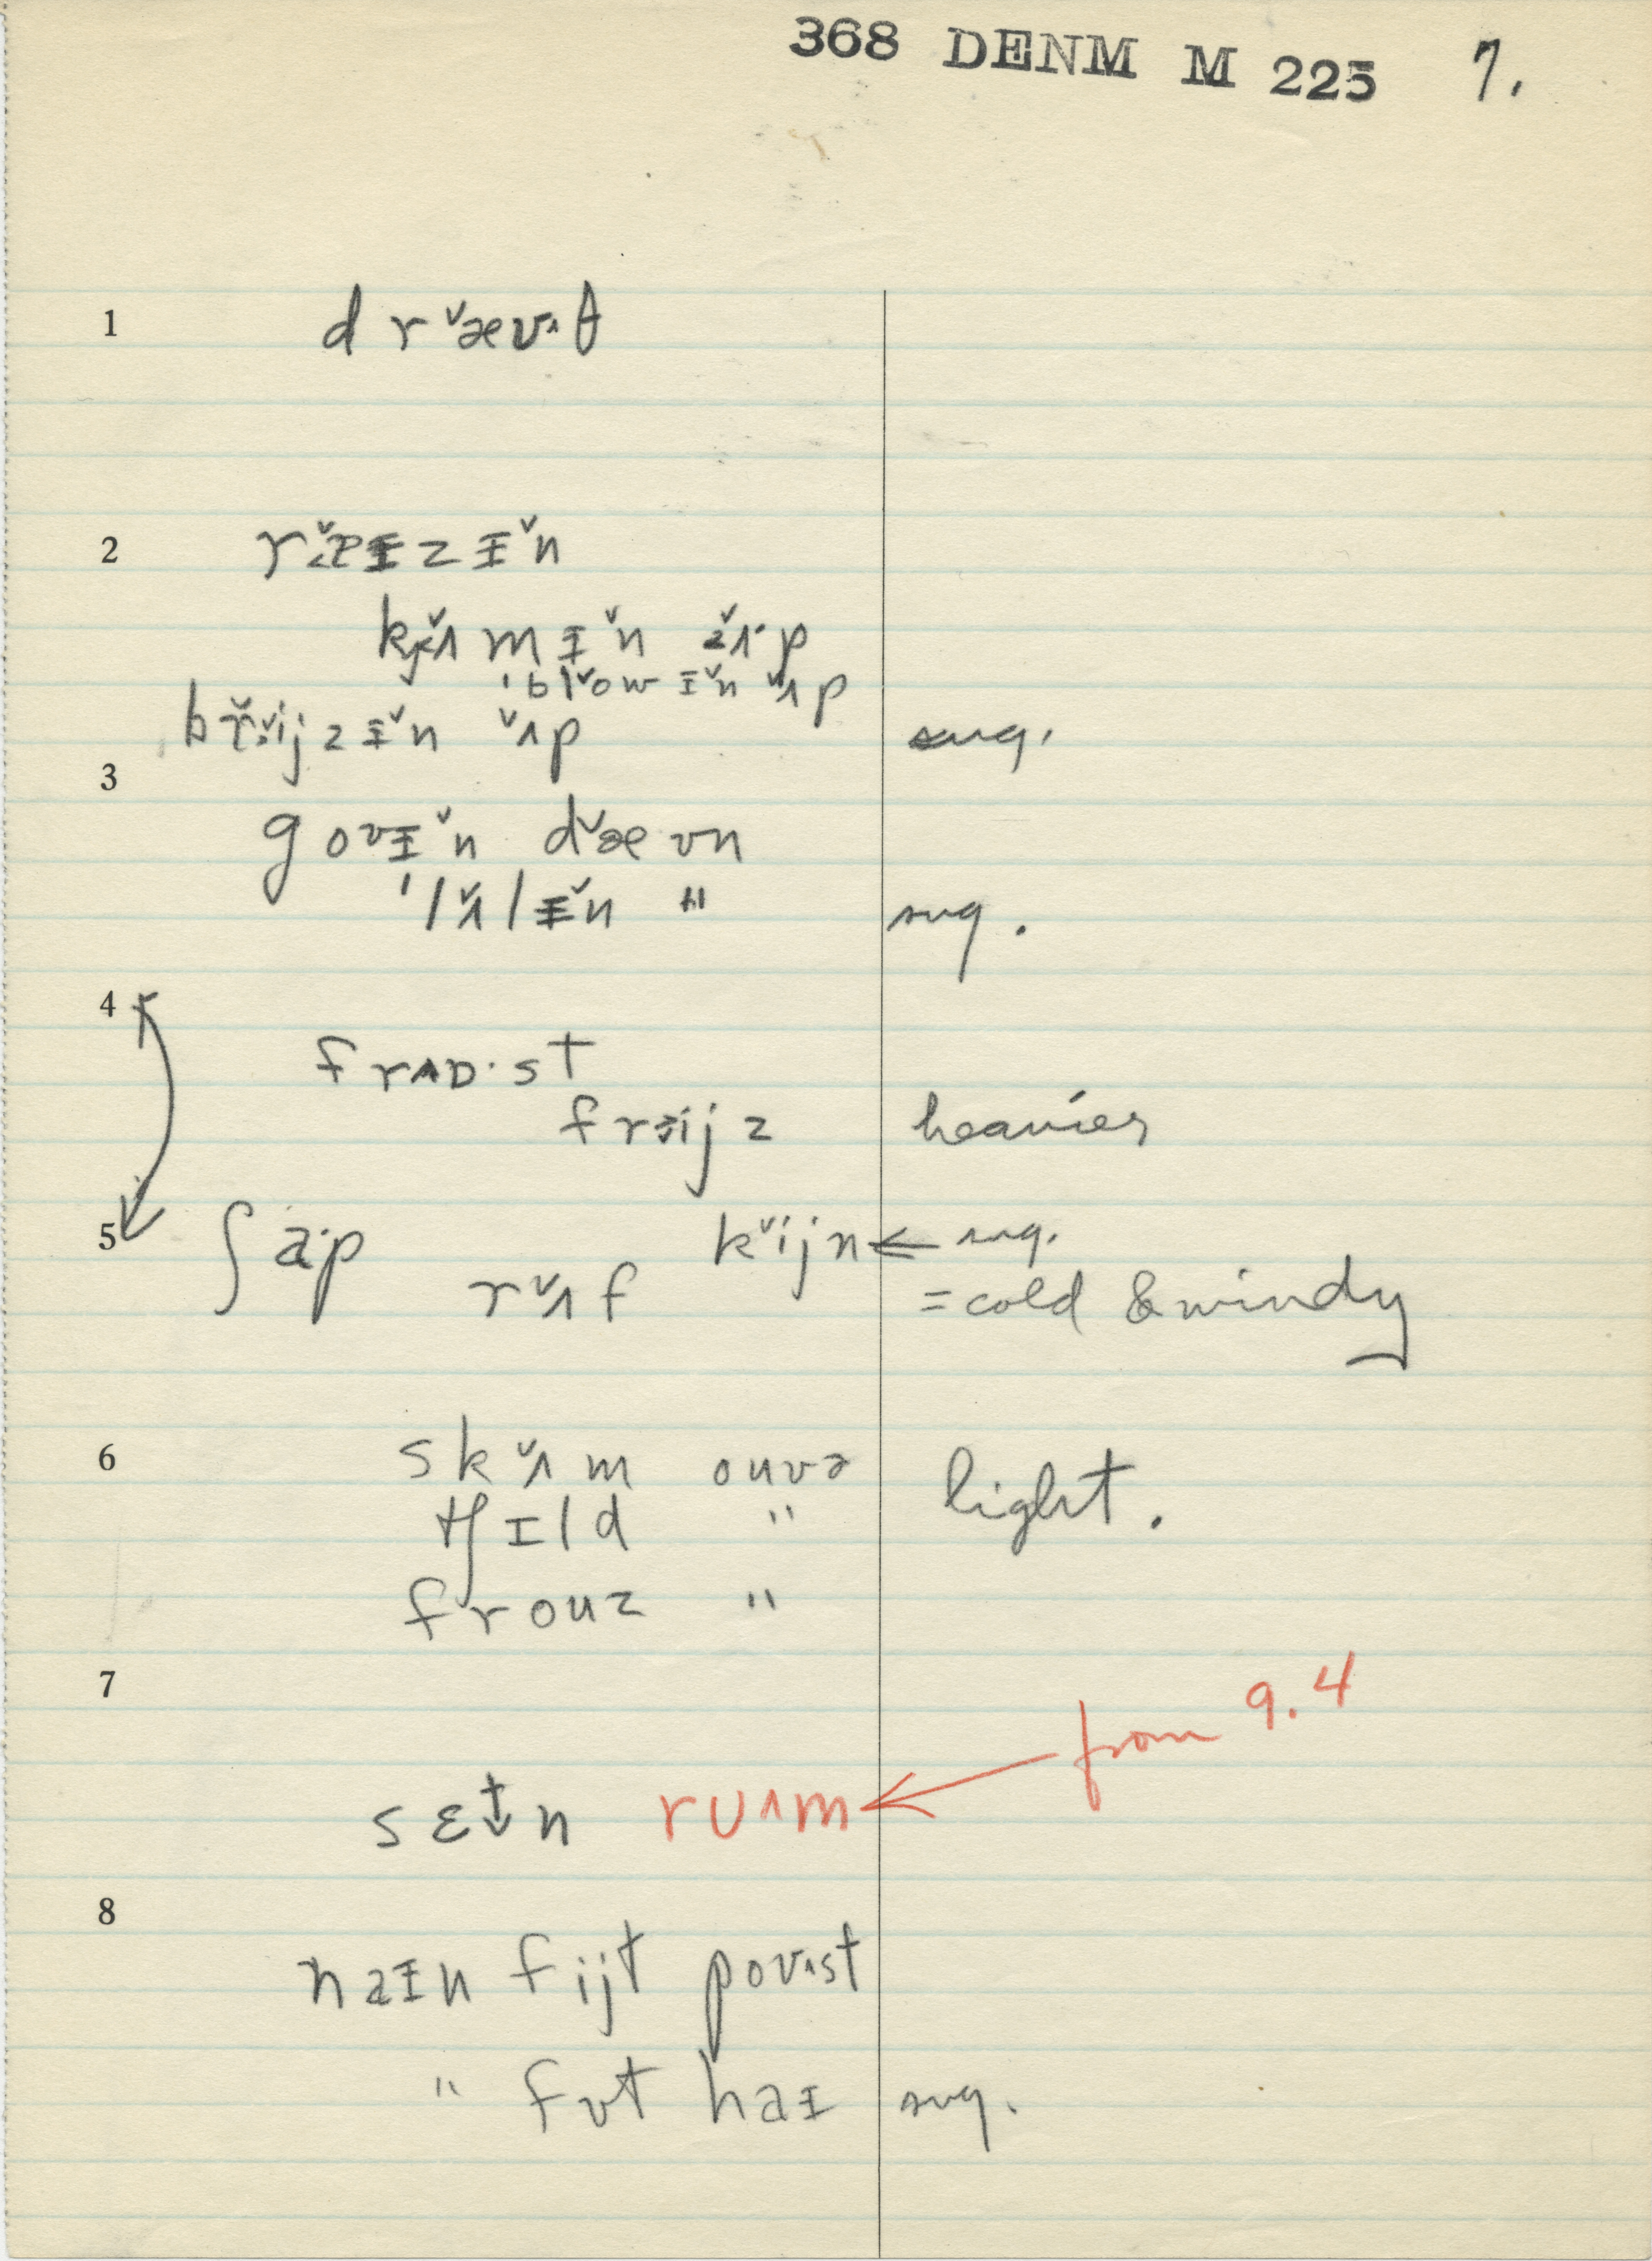 368 DENM M 225 7.
1 d r ˇæʊ^θ
2 r ˇæɪ z ɪ ˇn
k ˇʌ m ɪ ˇn ˇʌ· p
ˈb l ˇo w ɪ ˇn ˇʌ p
b r ˇi j z ɪ ˇn ˇʌ p sug.
3
g o ʊ ɪ ˇn d ˇæ ʊ n
ˈl ˇʌ l ɪ ˇn " sug.
4
f r ʌ ɒ · s t
f r ˇi j z heavier
5 ʃ a· p k ˇi j n ← sug.
r ˇʌ f = cold & windy
6 s k ˇʌ m o u v ə light.
tʃ ɪ l d "
f r o u z "
7 from 9.4
s ɛ t↓ n r ʊ ʌ m ←
8
n a ɪ n f i j t p o ʊ ʌ s t
" f ʊ t h a ɪ sug.